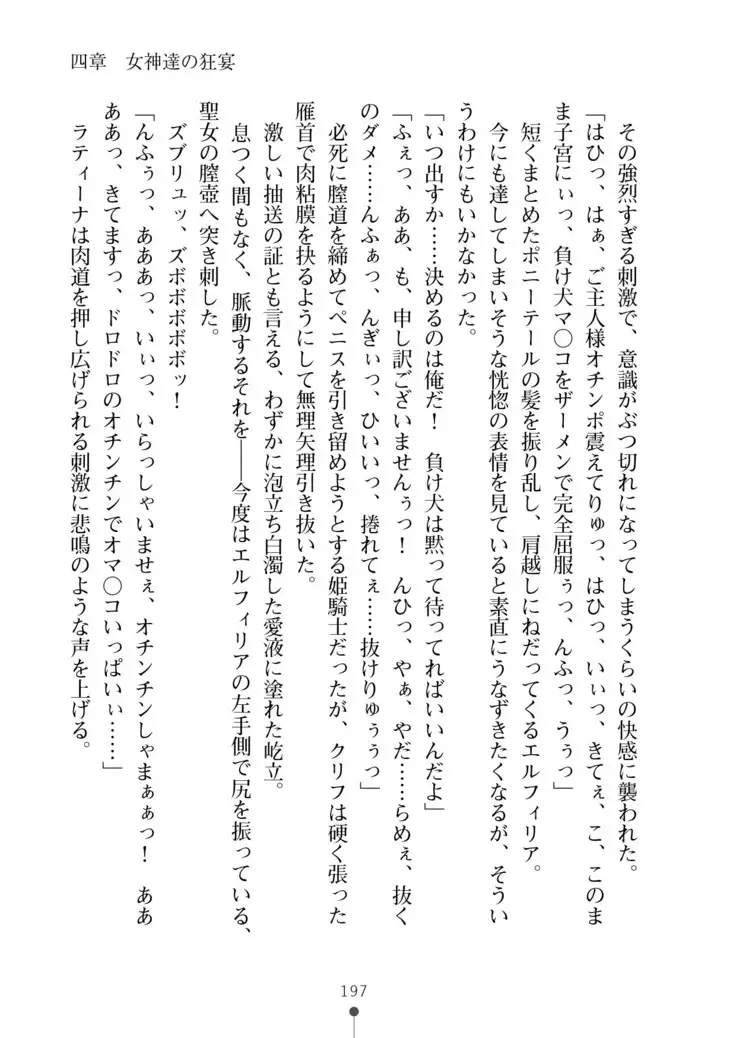 四章　女神達の狂宴
その強烈すぎる刺激で、意識がぶつ切れになってしまうくらいの快感に襲われた。
「はひっ、はぁ、ご主人様オチンポ震えてりゅっ、はひっ、いぃっ、きてぇ、こ、このま
ま子宮にぃっ、負け犬マ〇コをザーメンで完全屈服ぅっ、んふっ、うぅっ」
短くまとめたポニーテールの髪を振り乱し、肩越しにねだってくるエルフィリア。
今にも達してしまいそうな恍惚の表情を見ていると素直にうなずきたくなるが、そうい
うわけにもいかなかった。
「いつ出すか……決めるのは俺だ！　負け犬は黙って待ってればいいんだよ」
「ふぇっ、ああ、も、申し訳ございませんぅっ！　んひっ、やぁ、やだ……らめぇ、抜く
のダメ……んふぁっ、んぎぃっ、ひいいっ、捲れてぇ……抜けりゅぅぅっ」
必死に膣道を締めてペニスを引き留めようとする姫騎士だったが、クリフは硬く張った
雁首で肉粘膜を抉るようにして無理矢理引き抜いた。
激しい抽送の証とも言える、わずかに泡立ち白濁した愛液に塗れた屹立。
息つく間もなく、脈動するそれを――今度はエルフィリアの左手側で尻を振っている、
聖女の膣壺へ突き刺した。
ズブリュッ、ズボボボボボッ！
「んふぅっ、あああっ、いぃっ、いらっしゃいませぇ、オチンチンしゃまぁぁっ！　ああ
ああっ、きてますっ、ドロドロのオチンチンでオマ〇コいっぱいぃ……」
ラティーナは肉道を押し広げられる刺激に悲鳴のような声を上げる。
197